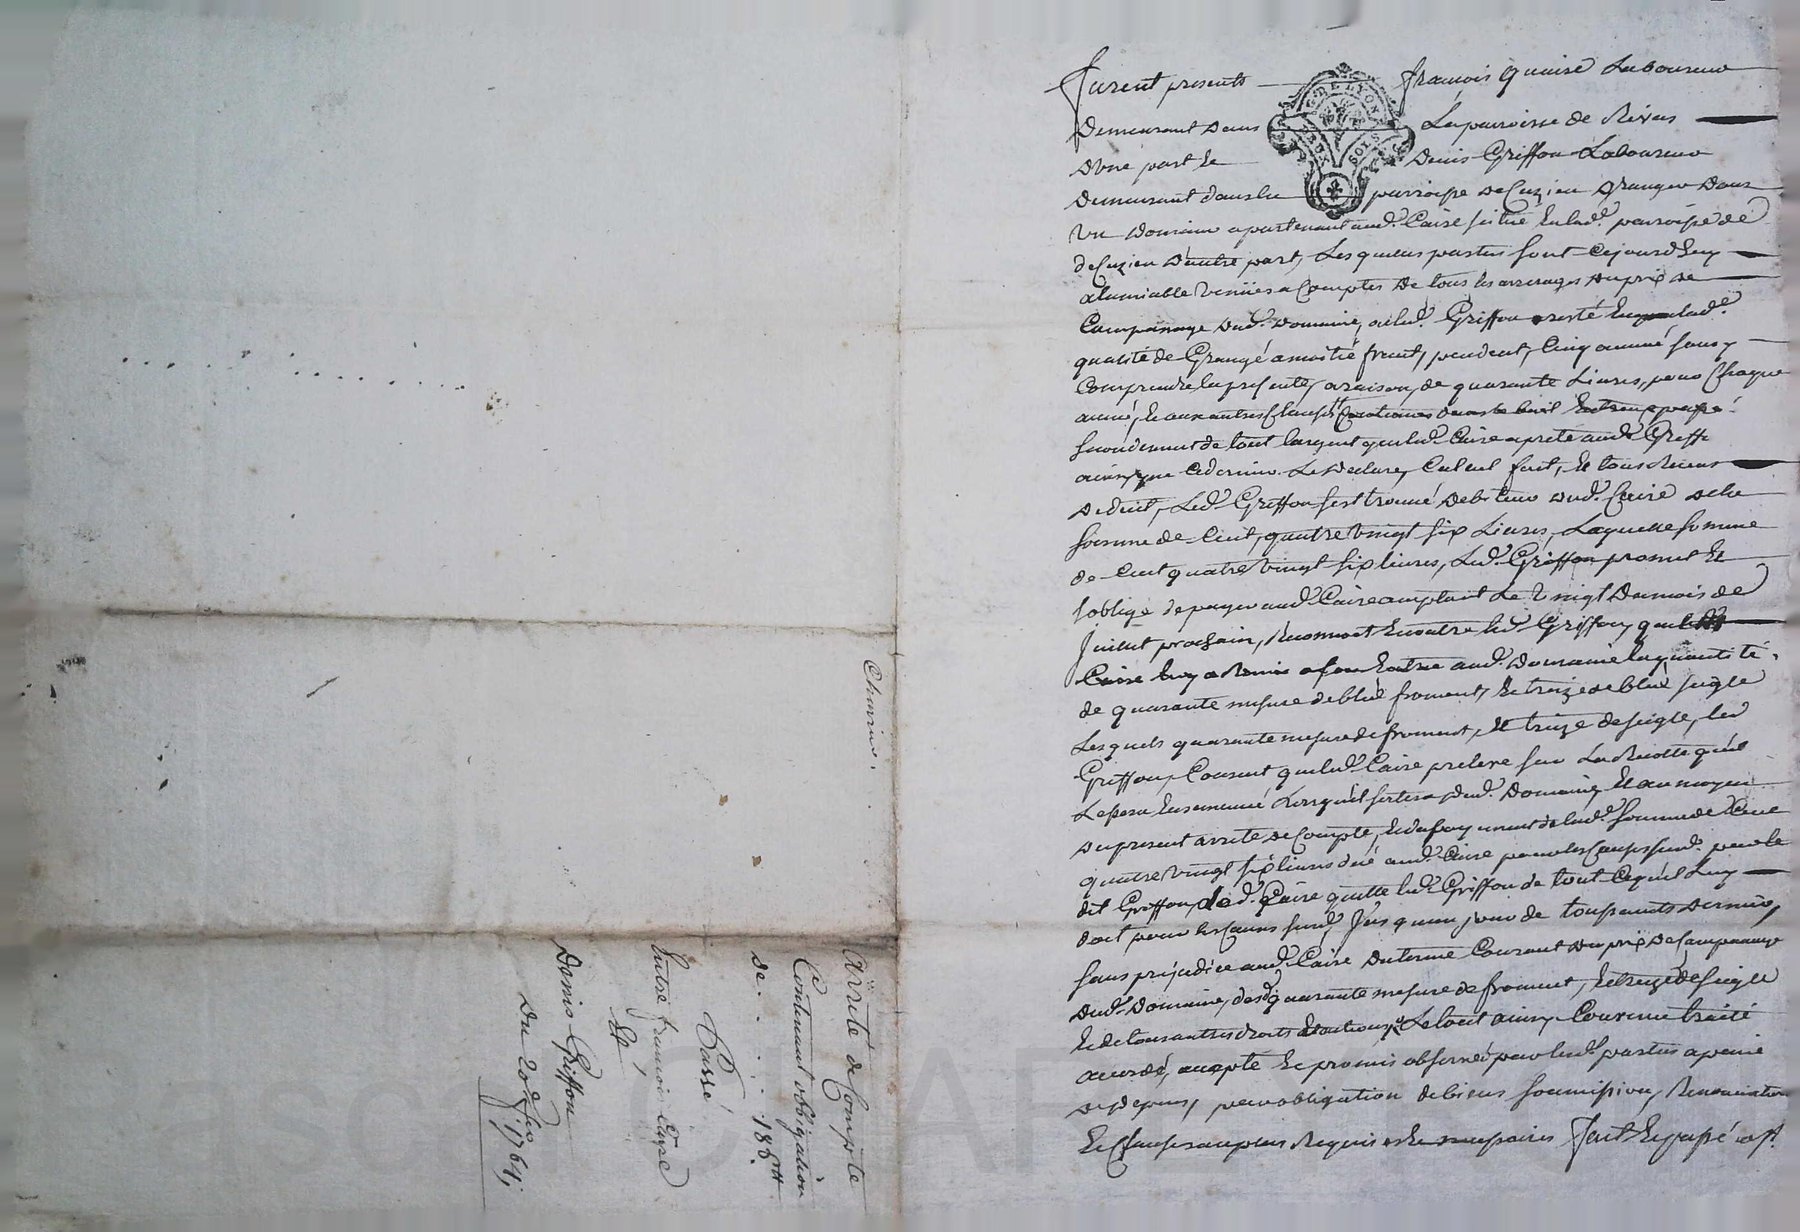 furent presents françois quaire Laboureur
Demeurant dans La parroisse de Rivas
D'une part Et Denis Griffon Laboureur
Demeurant dans la parroisse de Cuzieu Granger dans
Un Domaine apartenant aud. Caire scitué en lad. parroisse de
de Cuzieu D'autre part, Les quelles parties sont cejourd'huy
a l'amiable venües a Compter De tous les arrerages du prix de
Campanage dud. Domaine, ou led. Griffon resté en lad.
qualité de Grangé a moitié fruit, pendent, Cinq année sans y
Comprendre la presente, a raison, de quarante Livres, pour Chaque
année, Et aux autres Clauses dans le bail Entreux passé
de tout largent que led. Caire a preté aud. Griffon
ainsy que Ce dernier Le Declare, Calcul fait, Et tous Receus
Deduit, Led. Griffon s'est trouvé Debiteur dud. Caire de la
somme de Cent, quatre vingt six Livres, Laquelle somme
de Cent quatre vingt six livres, Led. Griffon promet Et
s'oblige de payer aud. Caire Le vingt Du mois de
Juillet prochain, Reconnoit En outre led. Griffon, que led.
Caire luy a Remis a son Entrée aud. Domaine la quantité
de quarante mesure de bled froment, Et treize de bled seigle
Lesquels quarante mesure de froment, Et treize de seigle, led.
Griffon, Consent que led. Caire preleve sur La Recolte qu'il
Lessera Ensemencé Lorsqu'il sortira dud. Domaine, Et au moyen
Du present arreté de Compte, Et du payement de lad. somme de Cent
quatre vingt six livres dué aud. Caire pour les Causes susd. par le
dit Griffon, led. Caire quitte led. Griffon de tout Ce qu'il Luy
doit pour les Causes susd. Jusqu'au jour de toussaints Dernier,
sans prejudice aud. Caire Du terme Courant Du prix de Campanage
Dud. Domaine, desd. quarante mesure de froment, Et treize de seigle
Et de tous autres droits Et actions, Le tout ainsy Convenu traité
accordé, accepté Et promis observer par lesd. parties a peine
De depens, par obligation de biens soumission, Renonciation
Et Clauses Requis Et necessaires fait Et passé
Charrin.
Arreté de Compte
Contenant obligation
de . . . . 186 tt
Passé
Entre francois Caire
Et,
Denis Griffon
Du 20e 1764;